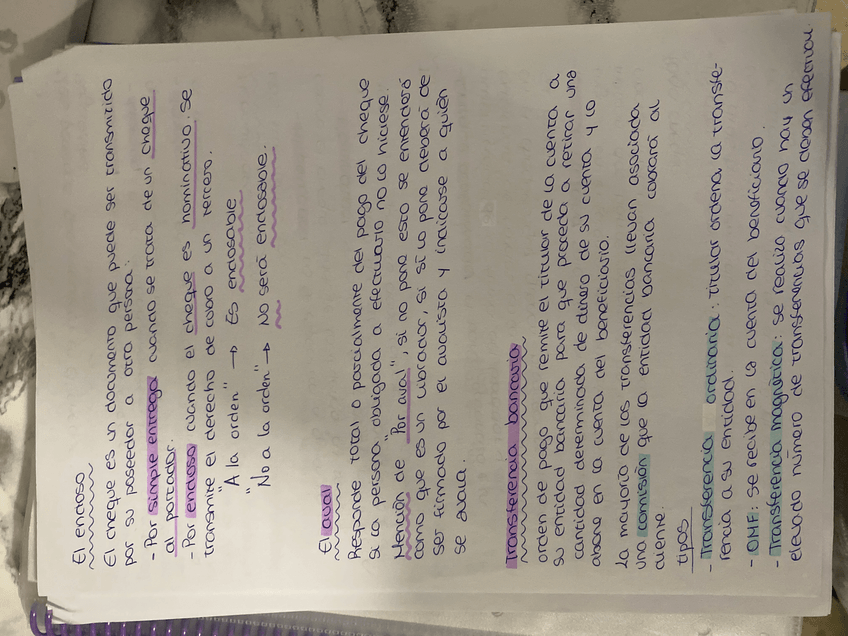 El endoso
El cheque es un documento que puede ser transmitido
por su poseedor a otra persona:
- Por simple entrega cuando se trata de un cheque
al portador.
- Por endoso cuando el cheque es nominativo. Se
transmite el derecho de cobro a un tercero.
"A la orden" → Es endosable
"No a la orden" → No será endosable.
El aval
Responde total o parcialmente del pago del cheque
si la persona obligada a efectuarlo no lo hiciese.
Mención de "Por aval", si no pone esto se entenderá
como que es un librador, si sí lo pone deberá de
ser firmado por el avalista y indicarse a quién
se avala.
Transferencia bancaria
orden de pago que remite el titular de la cuenta a
su entidad bancaria para que proceda a retirar una
cantidad determinada de dinero de su cuenta y lo
abone en la cuenta del beneficiario.
La mayoría de las transferencias llevan asociada
una comisión que la entidad bancaria cobrará al
cliente.
tipos
- Transferencia ordinaria: titular ordena la transfe-
rencia a su entidad.
- OMF: se recibe en la cuenta del beneficiario.
- Transferencia magnética: se realiza cuando hay un
elevado número de transferencias que se deben efectuar.